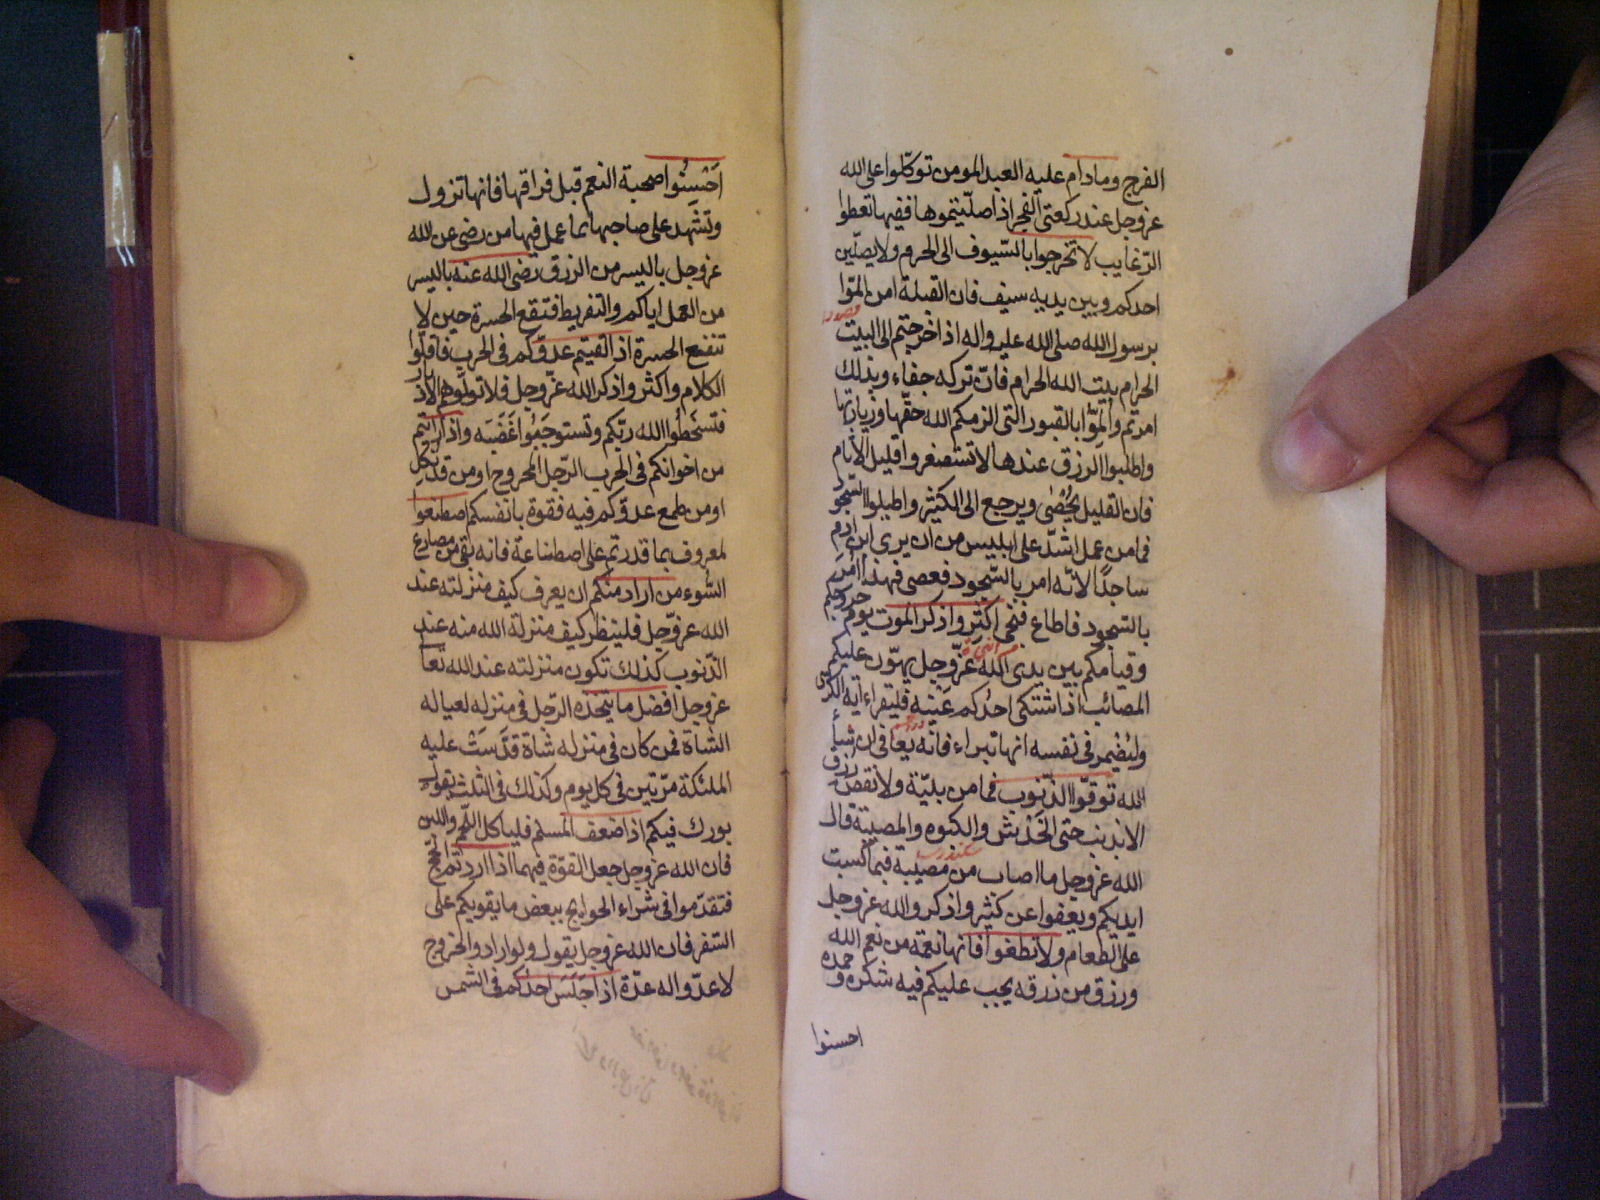 الفرج وما دام عليه العبد المومن توكّلوا على الله
عزوجل عند ركعتى الفجر اذا صلّيتموها ففيها تعطوا
الرّغايب لا تخرجوا بالسّيوف الى الحرم ولا يصلّين
احدكم وبين يديه سيف فان القبلة امن المّوا
برسول الله صلى الله عليه واله اذا خرجتم الى البيت
الحرام بيت الله الحرام فانّ تركه جفاء وبذلك
امرتم والمّوا بالقبور التى الزمكم الله حقّها وزيارتها
واطلبوا الرزق عندها لا تستصغروا قليل الآثام
فان القليل يُحْصٰى ويرجع الى الكثير واطيلوا السّجود
فما من عمل اشدّ على ابليس من ان يرى ابن ادم
ساجدًا لانّه امر بالسّجود فعصى فهذا امر
بالسّجود فاطاع فنجى اكثروا ذكر الموت يوم خروجكم
وقيامكم بين يدى الله عزّوجل يهوّن عليكم
المصائب اذا اشتكى احدكم عينيه فليقراء اية الكرسى
وليضمر فى نفسه انها تبراء فانّه يعافى ان شأ
الله توقّوا الذّنوب فما من بليّة ولا نقص رزق
الا بذنب حتى الخدش والكبوه والمصيبة قال
الله عزوجل ما اصاب من مصيبة فبما كسبت
ايديكم ويعفوا عن كثير واذكروا الله عزوجل
على الطعام ولا تطغوا فانها نعمة من نعم الله
ورزق من رزقه يجب عليكم فيه شكره و حمده
احسنوا
اَحْسِنُوا صحبة النعم قبل فراقها فانها تزول
وتشهد على صاحبها بما عمل فيها من رضى عن الله
عزوجل باليسر من الرزق رضى الله عنه باليسر
من العمل اياكم والتفريط فتقع الحسرة حين لا
تنفع الحسرة اذا لقيتم عدوّكم فى الحرب فاقلّوا
الكلام واكثروا ذكر الله عزّوجل فلا تولّوهم الادبار
فتسخطوا الله ربّكم وتستوجبُوا غَضَبَه واذا رايتم
من اخوانكم فى الحرب الرّجل المجروح او من قد نكل
او من طمع عدوّكم فيه فقوّة بانفسكم اصطنعوا
لمعروف بما قدرتم على اصطناعة فانه تقى من مصارع
السّوء من اراد منكم ان يعرف كيف منزلته عند
الله عزوّجل فلينظر كيف منزلة الله منه عند
الذّنوب كذلك تكون منزلته عند الله تعا
عزوجل افضل ما يتخذه الرّجل فى منزله لعياله
الشاة فمن كان فى منزله شاة قدّسَتْ عليه
الملئكة مرّتين فى كل يوم وكذلك فى الثلث يقول
بورك فيكم اذا ضعف المسلم فلياكل اللّحم واللبن
فان الله عزوجل جعل القوّة فيهما اذا اردتم الحج
فتقدّموا فى شراء الحوايج ببعض ما يقويكم على
السّفر فان الله عزوجل يقول ولو ارادوا الخروج
لاعدّوا له عدّة اذا جَلَسَ احدكم فى الشمس